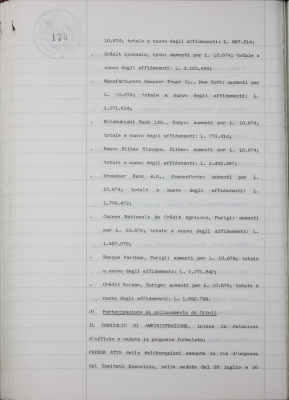 176
10.674; totale a nuovo degli affidamenti: L. 867.814;
. Crédit Lyonnais, Lyon: aumenti per L. 10.674; totale a
nuovo degli affidamenti: L.
. Manufacturers Hanover Trust Co., New York: aumenti per
L. 10.674; totale a nuovo degli affidamenti: L.
1.271.634;
. Mitsubishi Bank Ltd., Tokyo: aumenti per L. 10.674;
totale a nuovo degli affidamenti: L. 773.414;
. Banco Bilbao Vizcaya, Bilbao: aumenti per L. 10.674;
totale a nuovo degli affidamenti: L.
. Dresdner Bank A.G., Francoforte: aumenti per L.
10.674; totale a nuovo degli affidamenti: L.
. Caisse Nationale de Crédit Agricole, Parigi: aumenti
per L. 10.674; totale a nuovo degli affidamenti: L.
1.467.070;
. Banque Paribas, Parigi: aumenti per L. 10.674; totale
a nuovo degli affidamenti: L. 1.771.842;
. Crédit Suisse, Zurigo: aumenti per L. 10.674; totale a
nuovo degli affidamenti: L.
d) Partecipazione al collocamento di titoli
IL CONSIGLIO DI AMMINISTRAZIONE, intesa la relazione
d'ufficio e vedute le proposte formulate;
PRENDE ATTO delle deliberazioni assunte in via d'urgenza
dal Comitato Esecutivo, nelle sedute del 28 luglio e